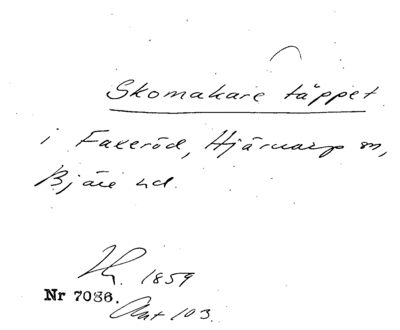 Skomakare täppet
i Faxeröd, Hjärnarp sn,
Bjäre hd.
1859
Nr 7086.
Ant 103.